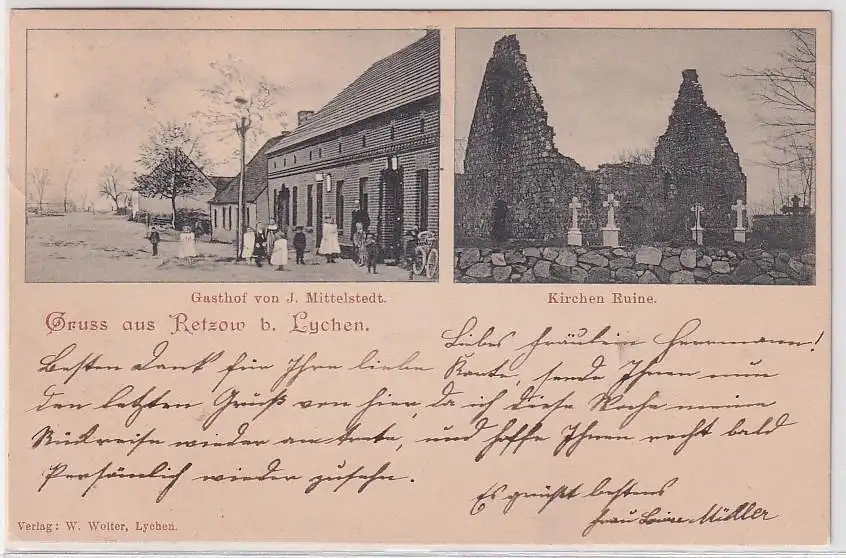 Gasthof von J. Mittelstedt.
Kirchen Ruine.
Gruss aus Retzow b. Lychen.
Liebes Fräulein Herrmann!
Besten Dank für Ihre liebe Karte, sende Ihnen nun
den letzten Gruß von hier, da ich diese Woche meine
Rückreise wieder antrete, und hoffe Ihnen recht bald
Persönlich wieder zusehn.
Es grüßt bestens
Frau Müller
Verlag: W. Wolter, Lychen.